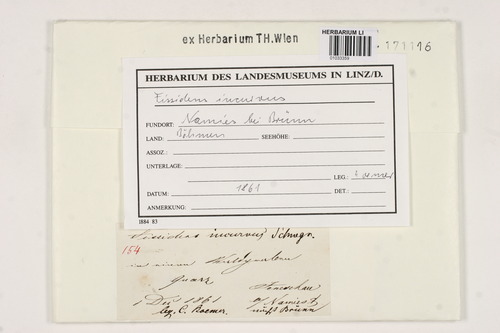 ex Herbarium TH.Wien
HERBARIUM LI
01033359
171116
HERBARIUM DES LANDESMUSEUMS IN LINZ/D.
Fissidens incurvus
FUNDORT: Namiest bei Brünn
LAND: Böhmen SEEHÖHE:
ASSOZ.:
UNTERLAGE:
LEG.: Roemer
DATUM: 1861 DET.:
ANMERKUNG:
1884 83
Fissidens incurvus Schwgr.
154
in einem
Quarz
1 Dez 1861
leg. C. Roemer.
Namiest
nächst Brünn